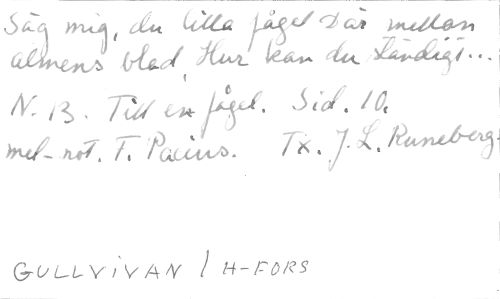 Säg mig, du lilla fågel Där mellan
almens blad, Hur kan du ständigt...
N. B. Till en fågel. Sid. 10.
mel-not. F. Pacius. Tx. J. L. Runeberg.
GULLVIVAN / H-FORS